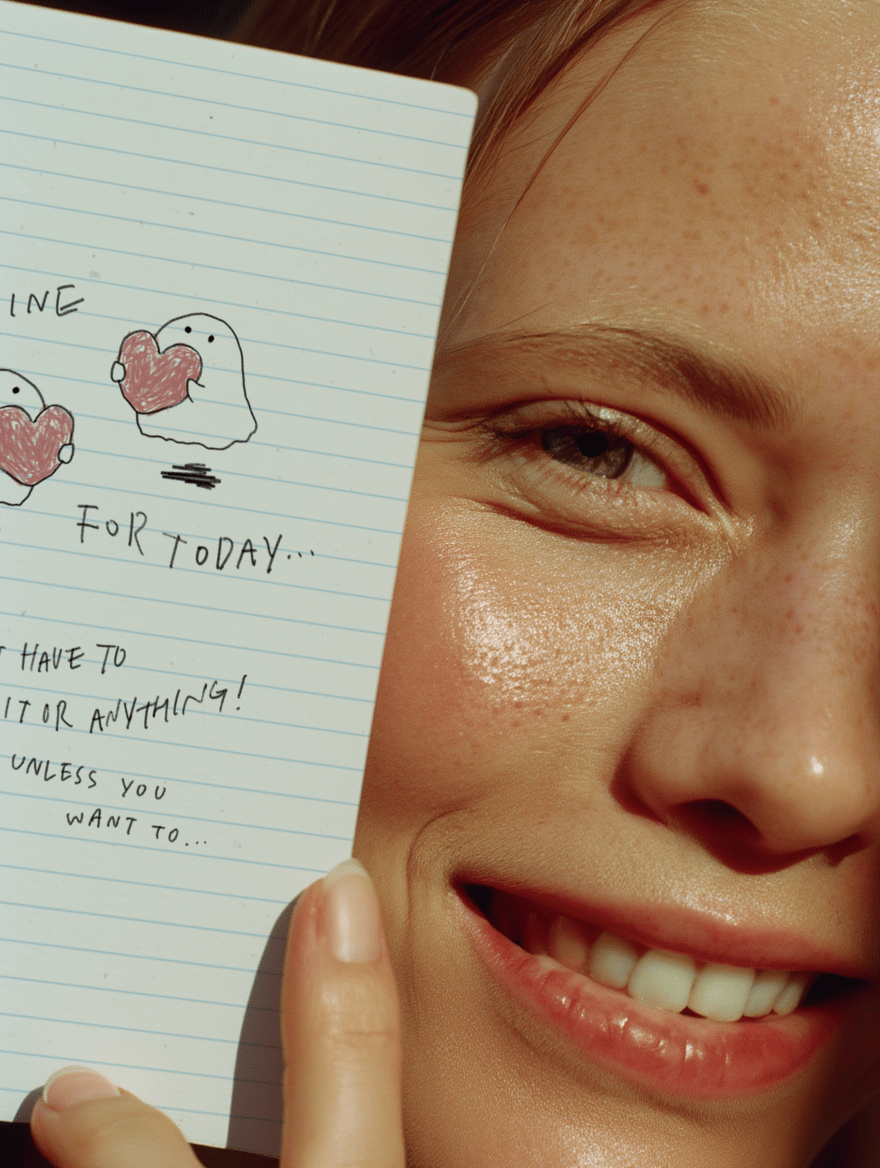 INE
FOR TODAY...
T HAVE TO
IT OR ANYTHING!
UNLESS YOU
WANT TO...